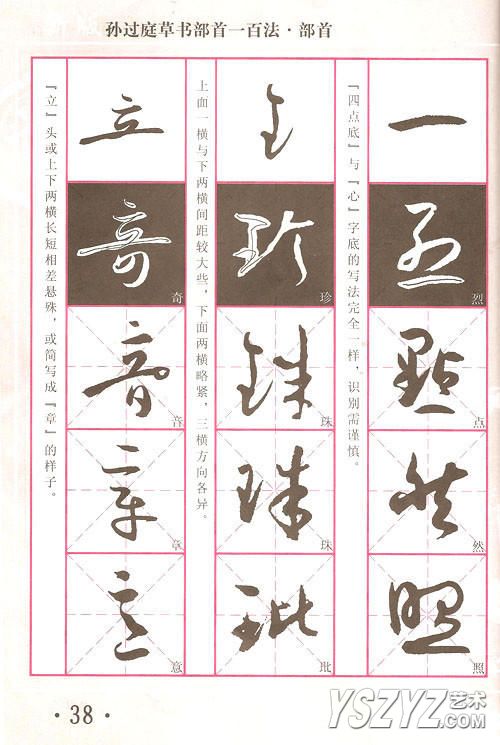 孙过庭草书部首一百法·部首
『四点底』与『心』字底的写法完全一样，识别需谨慎。
烈
点
然
照
上面一横与下两横间距较大些，下面两横略紧，三横方向各异。
珍
珠
珠
玭
『立』头或上下两横长短相差悬殊，或简写成『章』的样子。
奇
音
章
意
·38·
YSZYZ艺术.com